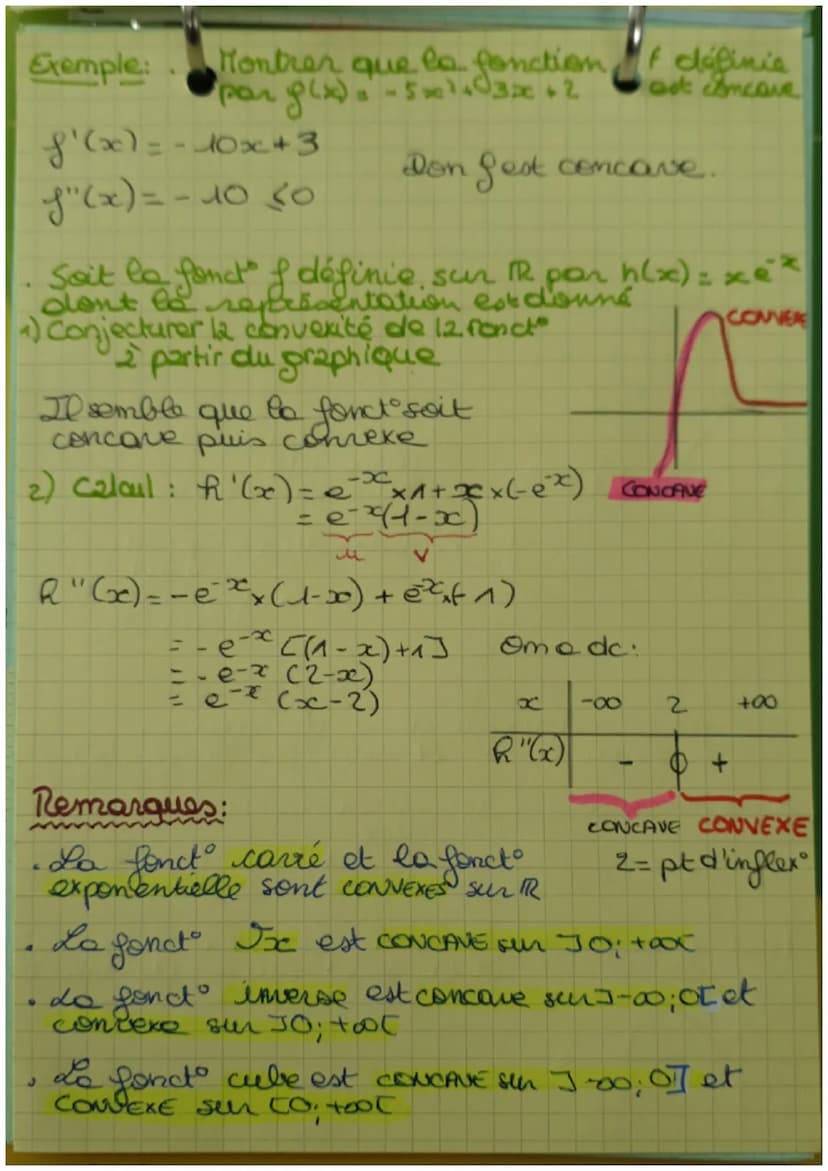 Exemple: . Montrer que la fonction f définie
par f(x) = -5x² + 3x + 2 est concave
f'(x) = -10x+3
f''(x) = -10 ≤0
Don f est concave.
. Soit la fonct° f définie sur ℝ par h(x) = xe^-x
dont la représentation est donné
1) Conjecturer la convexité de la fonct°
à partir du graphique
CONVEXE
Il semble que la fonct° soit
concave puis convexe
CONCAVE
2) Calcul : h'(x) = e^-x ×1 + x×(-e^-x)
= e^-x(1-x)
u v
h''(x) = -e^-x × (1-x) + e^-x×(-1)
= -e^-x [(1-x)+1]
= -e^-x (2-x)
= e^-x (x-2)
On a dc:
x -∞ 2 +∞
h''(x) - 0 +
CONCAVE CONVEXE
2 = pt d'inflex°
Remarques:
. La fonct° carré et la fonct°
exponentielle sont CONVEXES sur ℝ
. La fonct° √x est CONCAVE sur ]0;+∞[
. La fonct° inverse est concave sur ]-∞;0[ et
convexe sur ]0;+∞[
. La fonct° cube est CONCAVE sur ]-∞;0] et
CONVEXE sur [0;+∞[